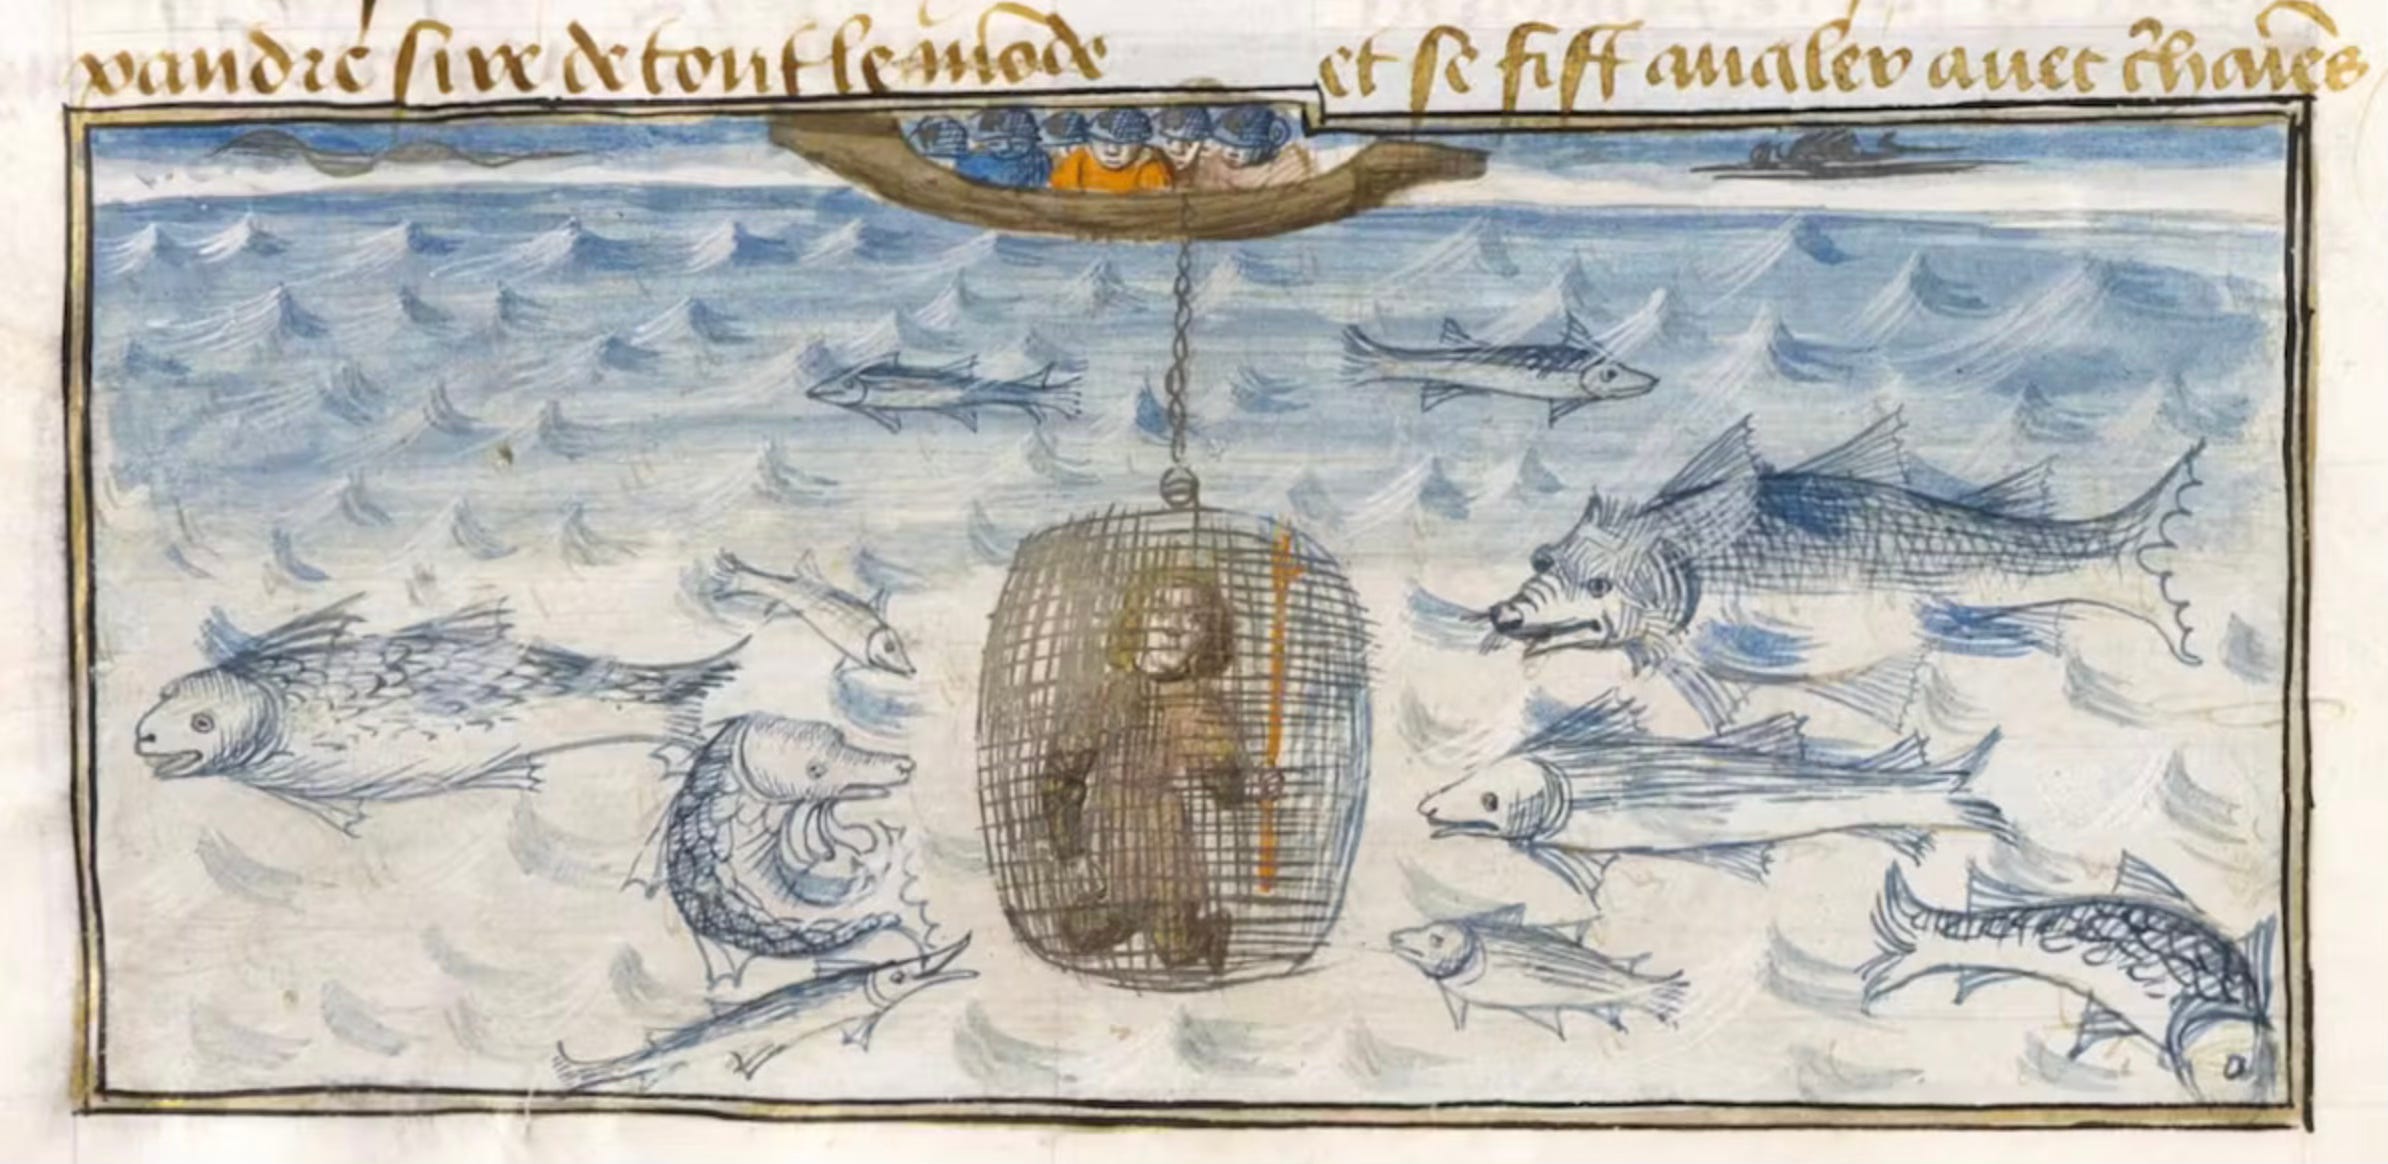 xandre sire de tout le mõde et se fist aualer auec chaiẽes